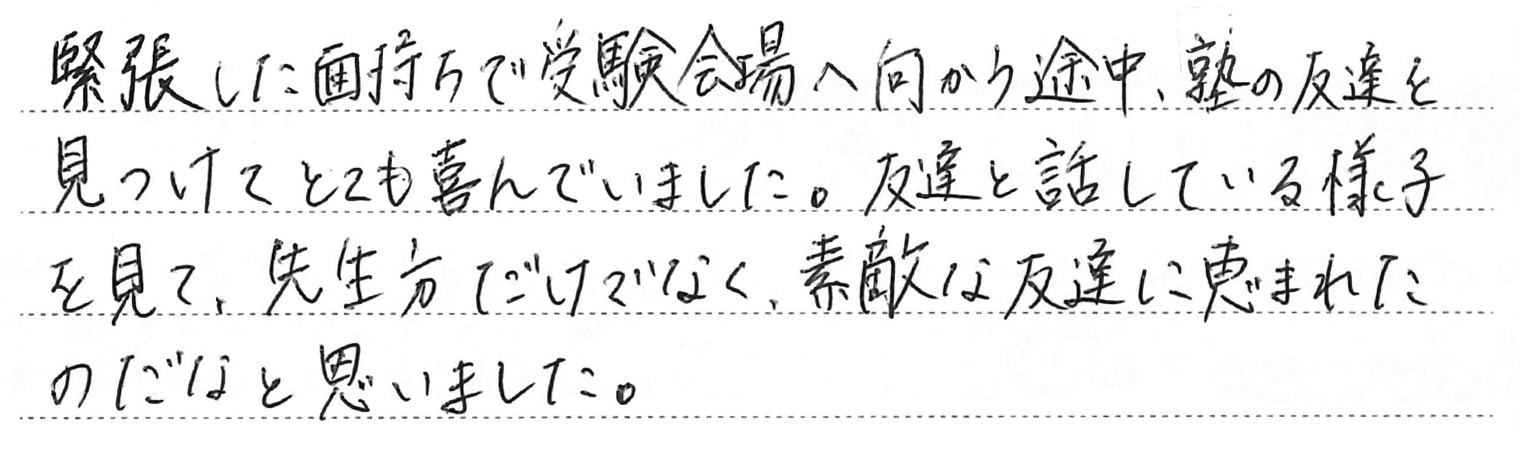 緊張した面持ちで受験会場へ向かう途中、塾の友達を
見つけてとても喜んでいました。友達と話している様子
を見て、先生方だけでなく、素敵な友達に恵まれた
のだなと思いました。